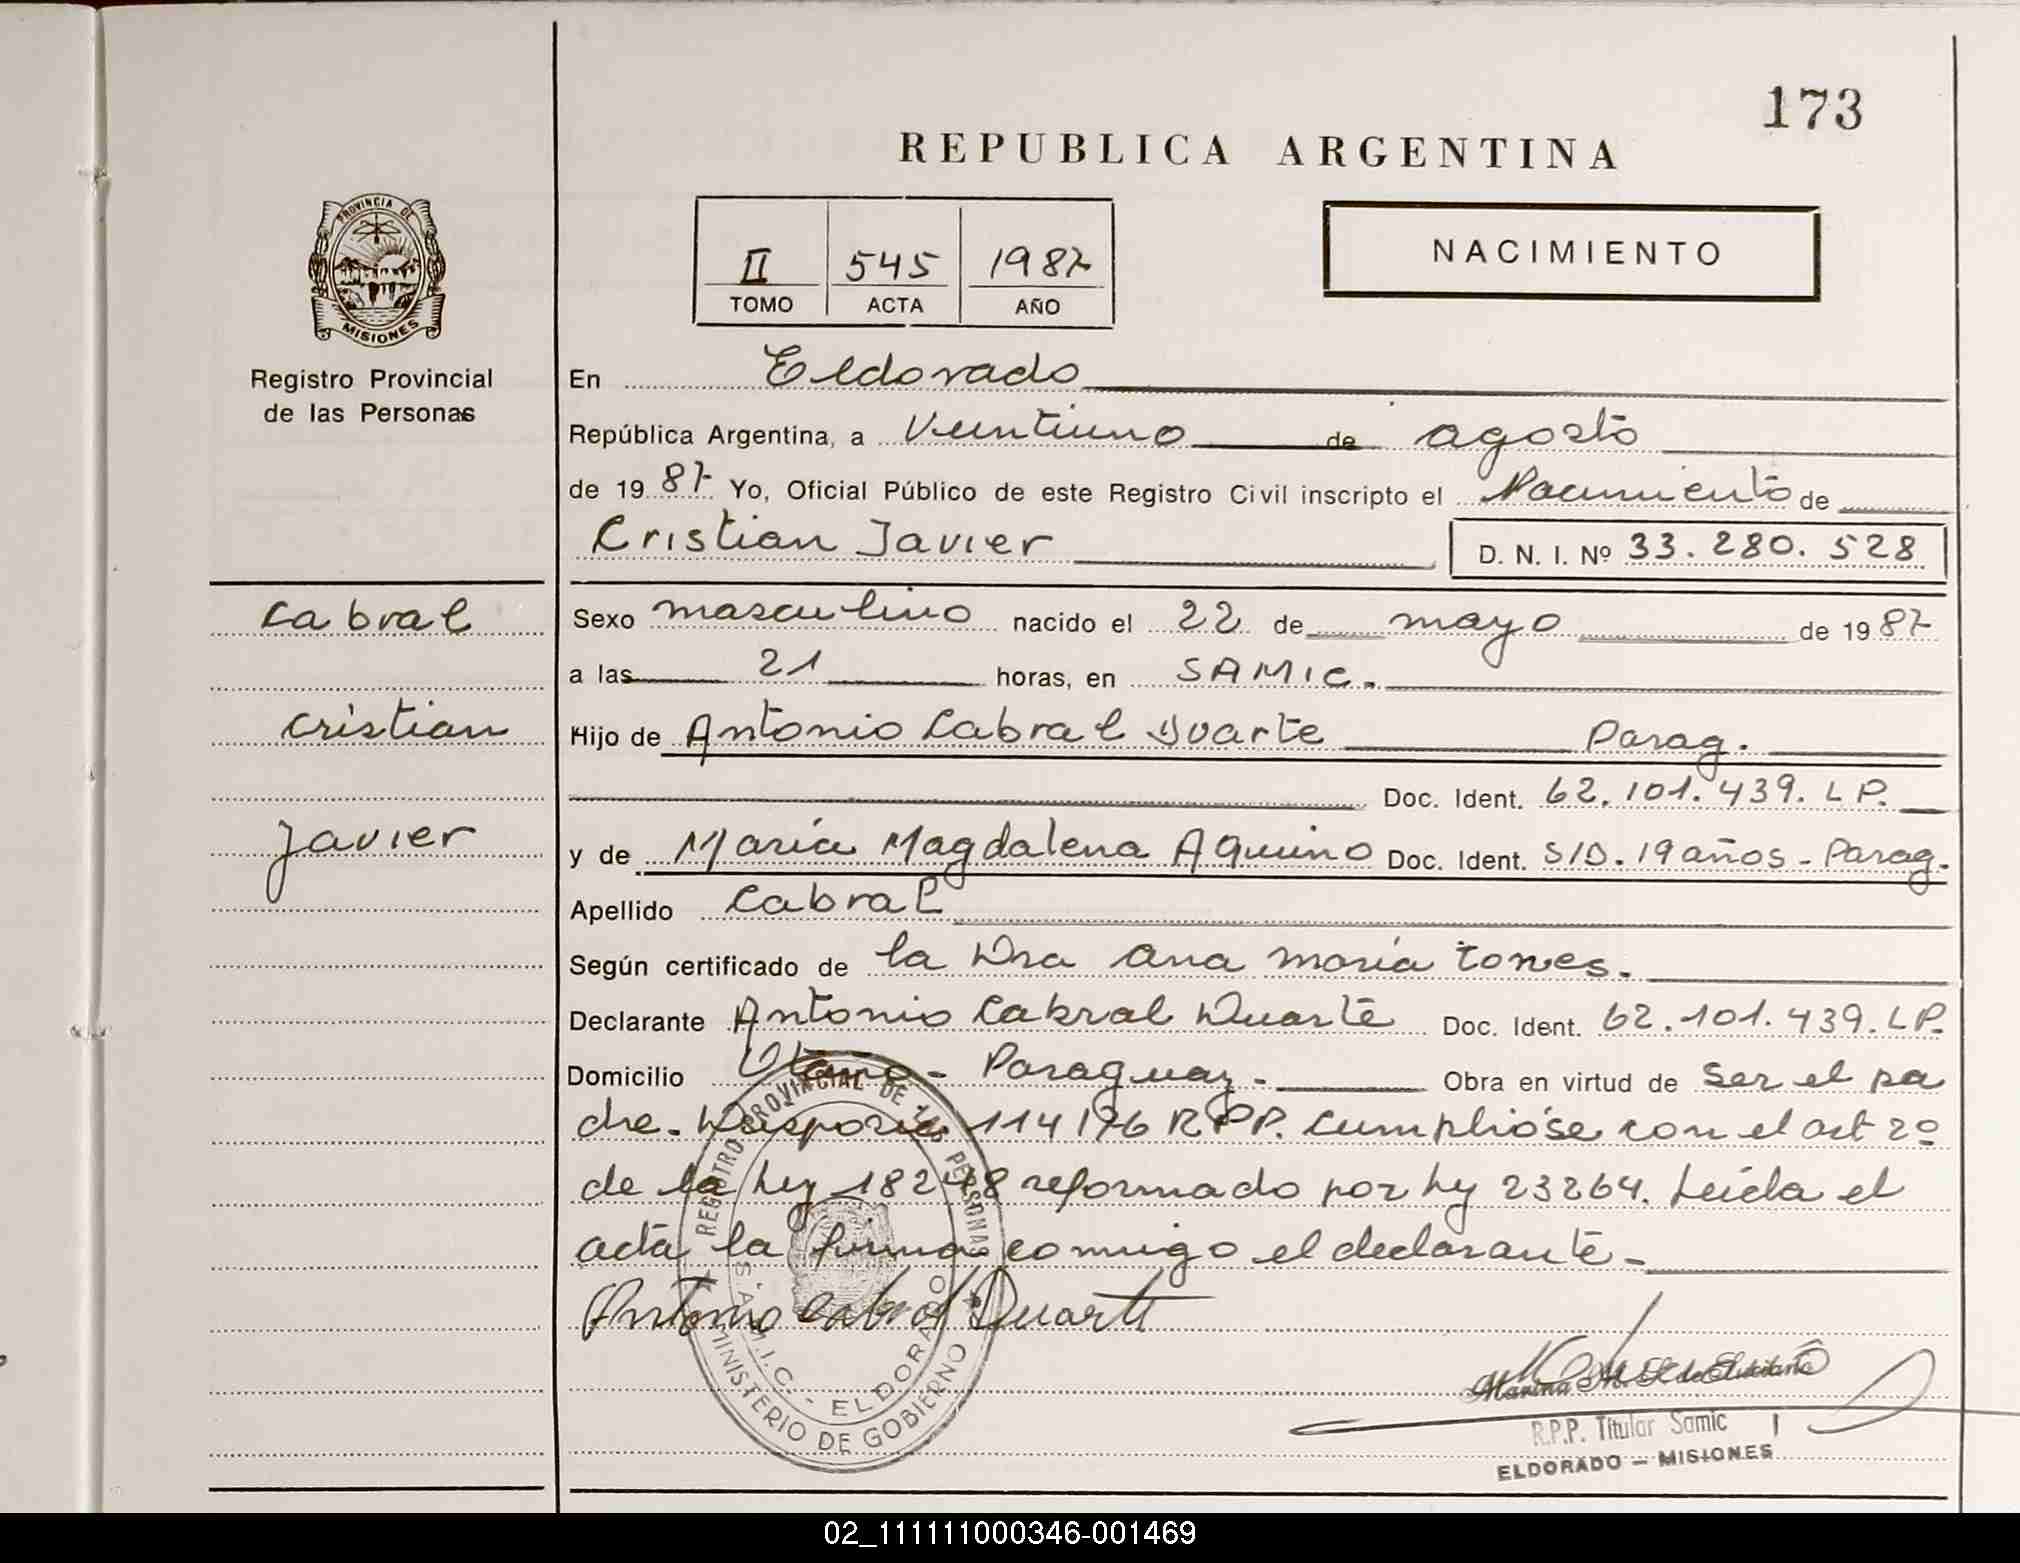 173
REPUBLICA ARGENTINA
PROVINCIA DE
MISIONES
Registro Provincial
de las Personas
II 545 1987
TOMO ACTA AÑO
NACIMIENTO
En Eldorado
República Argentina, a Veintiuno de agosto
de 1987 Yo, Oficial Público de este Registro Civil inscripto el Nacimiento de
Cristian Javier D. N. I. Nº 33.280.528
Cabral
Cristian
Javier
Sexo masculino nacido el 22 de mayo de 1987
a las 21 horas, en SAMIC.
Hijo de Antonio Cabral Duarte Parag.
Doc. Ident. 62.101.439. LP.
y de María Magdalena Aquino Doc. Ident. S/D. 19 años - Parag.
Apellido Cabral
Según certificado de la Dra Ana María Torres.
Declarante Antonio Cabral Duarte Doc. Ident. 62.101.439. LP.
Domicilio Otaño - Paraguay - Obra en virtud de ser el pa
dre. Disposic. 114176 RPP. Cumplióse con el art 2º
de la Ley 18248 reformado por Ley 23264. Leída el
acta la firma comigo el declarante -
Antonio Cabral Duarte
REGISTRO PROVINCIAL DE LAS PERSONAS
S.A.M.I.C. - ELDORADO
MINISTERIO DE GOBIERNO
Marina M.
R.P.P. Titular Samic
ELDORADO — MISIONES
02_111111000346-001469